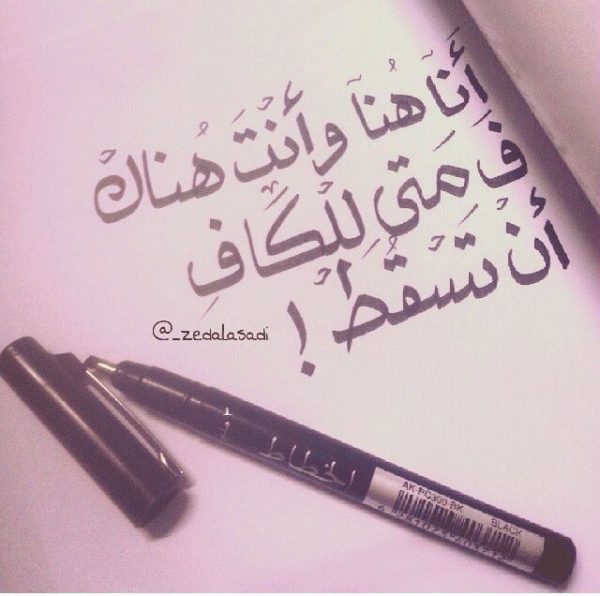 أَنَا هُنَا وأَنْتَ هُناكْ
فَ مَتى لِلْكَافِ
أَنْ تَسْقُطَ !
@_zedalasadi
الخطاط
AK-PC300-BK
BLACK